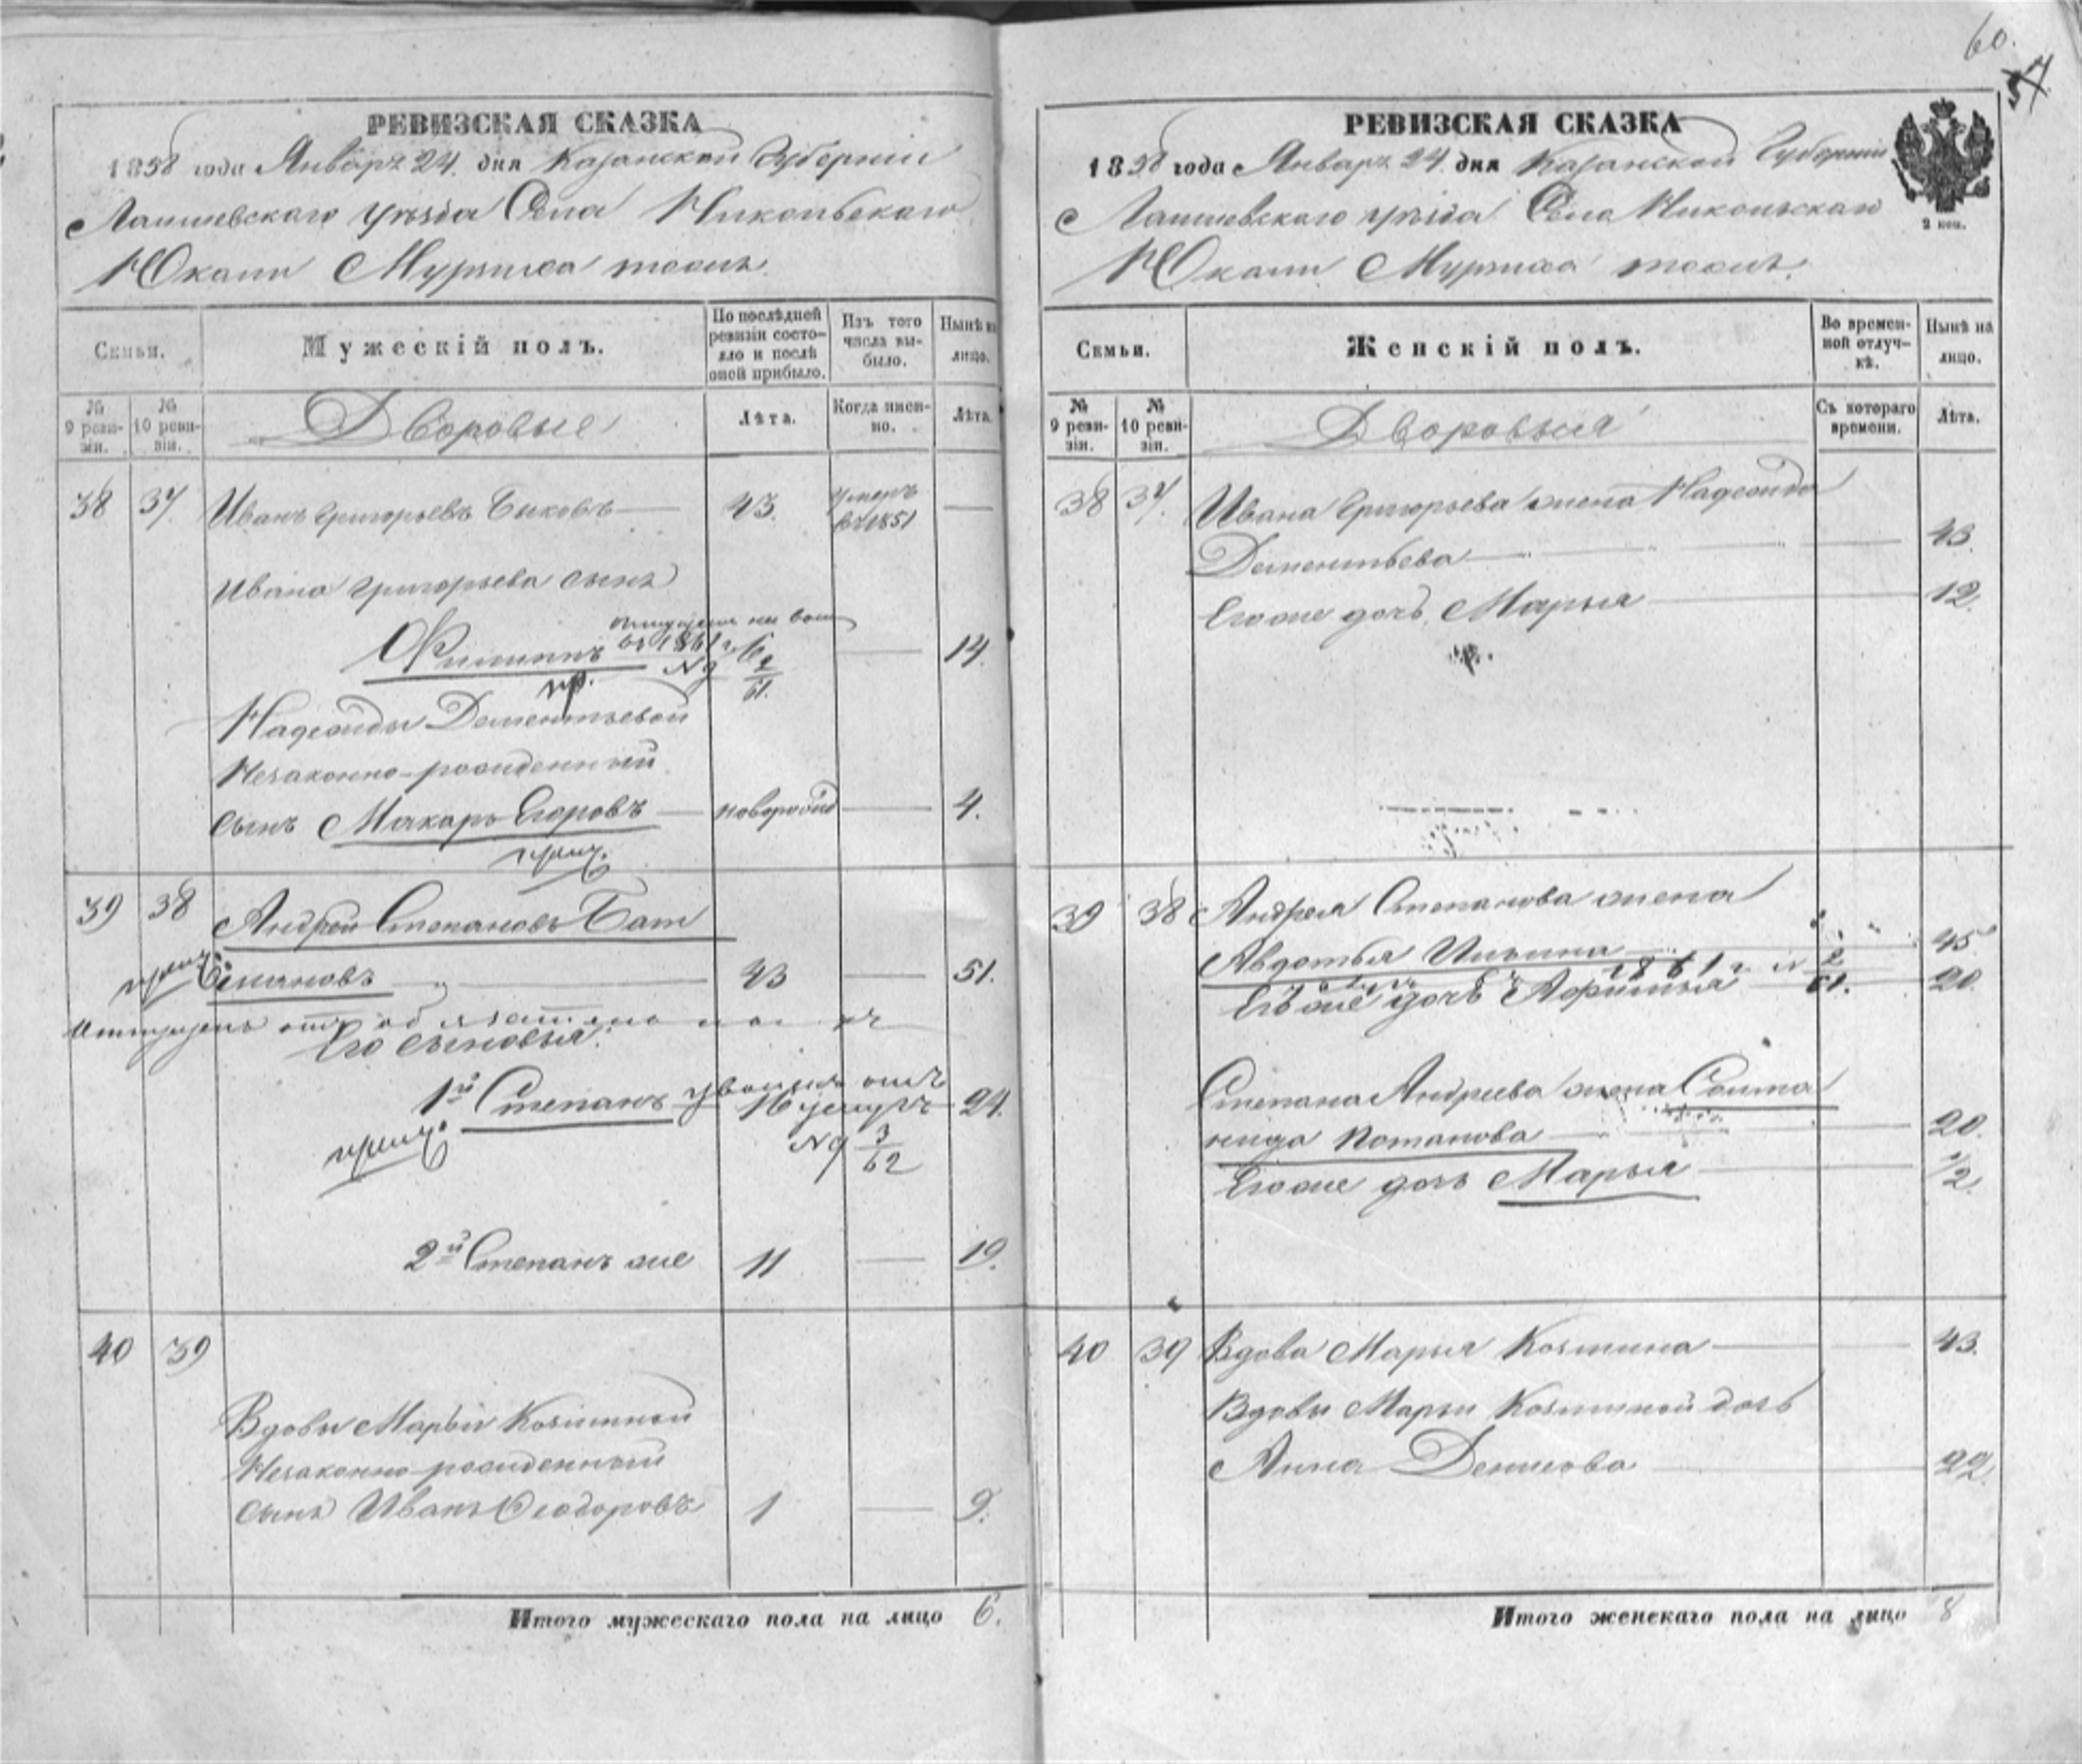 60.
57
РЕВИЗСКАЯ СКАЗКА
1858 года Январь 24. дня Казанской Губерніи
Лаишевскаго уѣзда Села Никольскаго
тожъ.
Семьи.
Мужескій полъ.
По послѣдней ревизіи состояло и послѣ оной прибыло.
Изъ того числа выбыло.
Нынѣ на лицо.
№ 9 ревизіи.
№ 10 ревизіи.
Дворовые
Лѣта.
Когда именно.
Лѣта.
38 37. Иванъ Григорьевъ Быковъ 43. умеръ въ 1851
Ивана Григорьева сынъ
Филиппъ 6 14.
въ 1861 г.
№ 2/61.
Надежды Дементьевой
Незаконно-рожденный
сынъ Макаръ Егоровъ новорожд 4.
39 38 Андрей Степановъ
43 51.
Его сыновья:
1й Степанъ 16 24.
№ 3/62
2й Степанъ же 11 19.
40 39
Вдовы Марьи Козминой
Незаконно-рожденный
сынъ Иванъ Ѳеодоровъ 1 9.
Итого мужескаго пола на лицо 6.
РЕВИЗСКАЯ СКАЗКА
1858 года Январь 24. дня Казанской Губерніи
Лаишевскаго уѣзда Села Никольскаго
тожъ.
2 коп.
Семьи.
Женскій полъ.
Во временной отлучкѣ.
Нынѣ на лицо.
№ 9 ревизіи.
№ 10 ревизіи.
Дворовыя
Съ котораго времени.
Лѣта.
38 37. Ивана Григорьева жена Надежда
Дементьева 43.
Его же дочь Марья 12.
39 38 Андрея Степанова жена
Авдотья Ильина 45
1861 г. № 2/61.
Его же дочь 20.
Степана Андреева жена Соломо
нида Потапова 20.
Его же дочь Марья 1/2.
40 39 Вдова Марья Козмина 43.
Вдовы Марьи Козминой дочь
Анна Денисова 22.
Итого женскаго пола на лицо 8